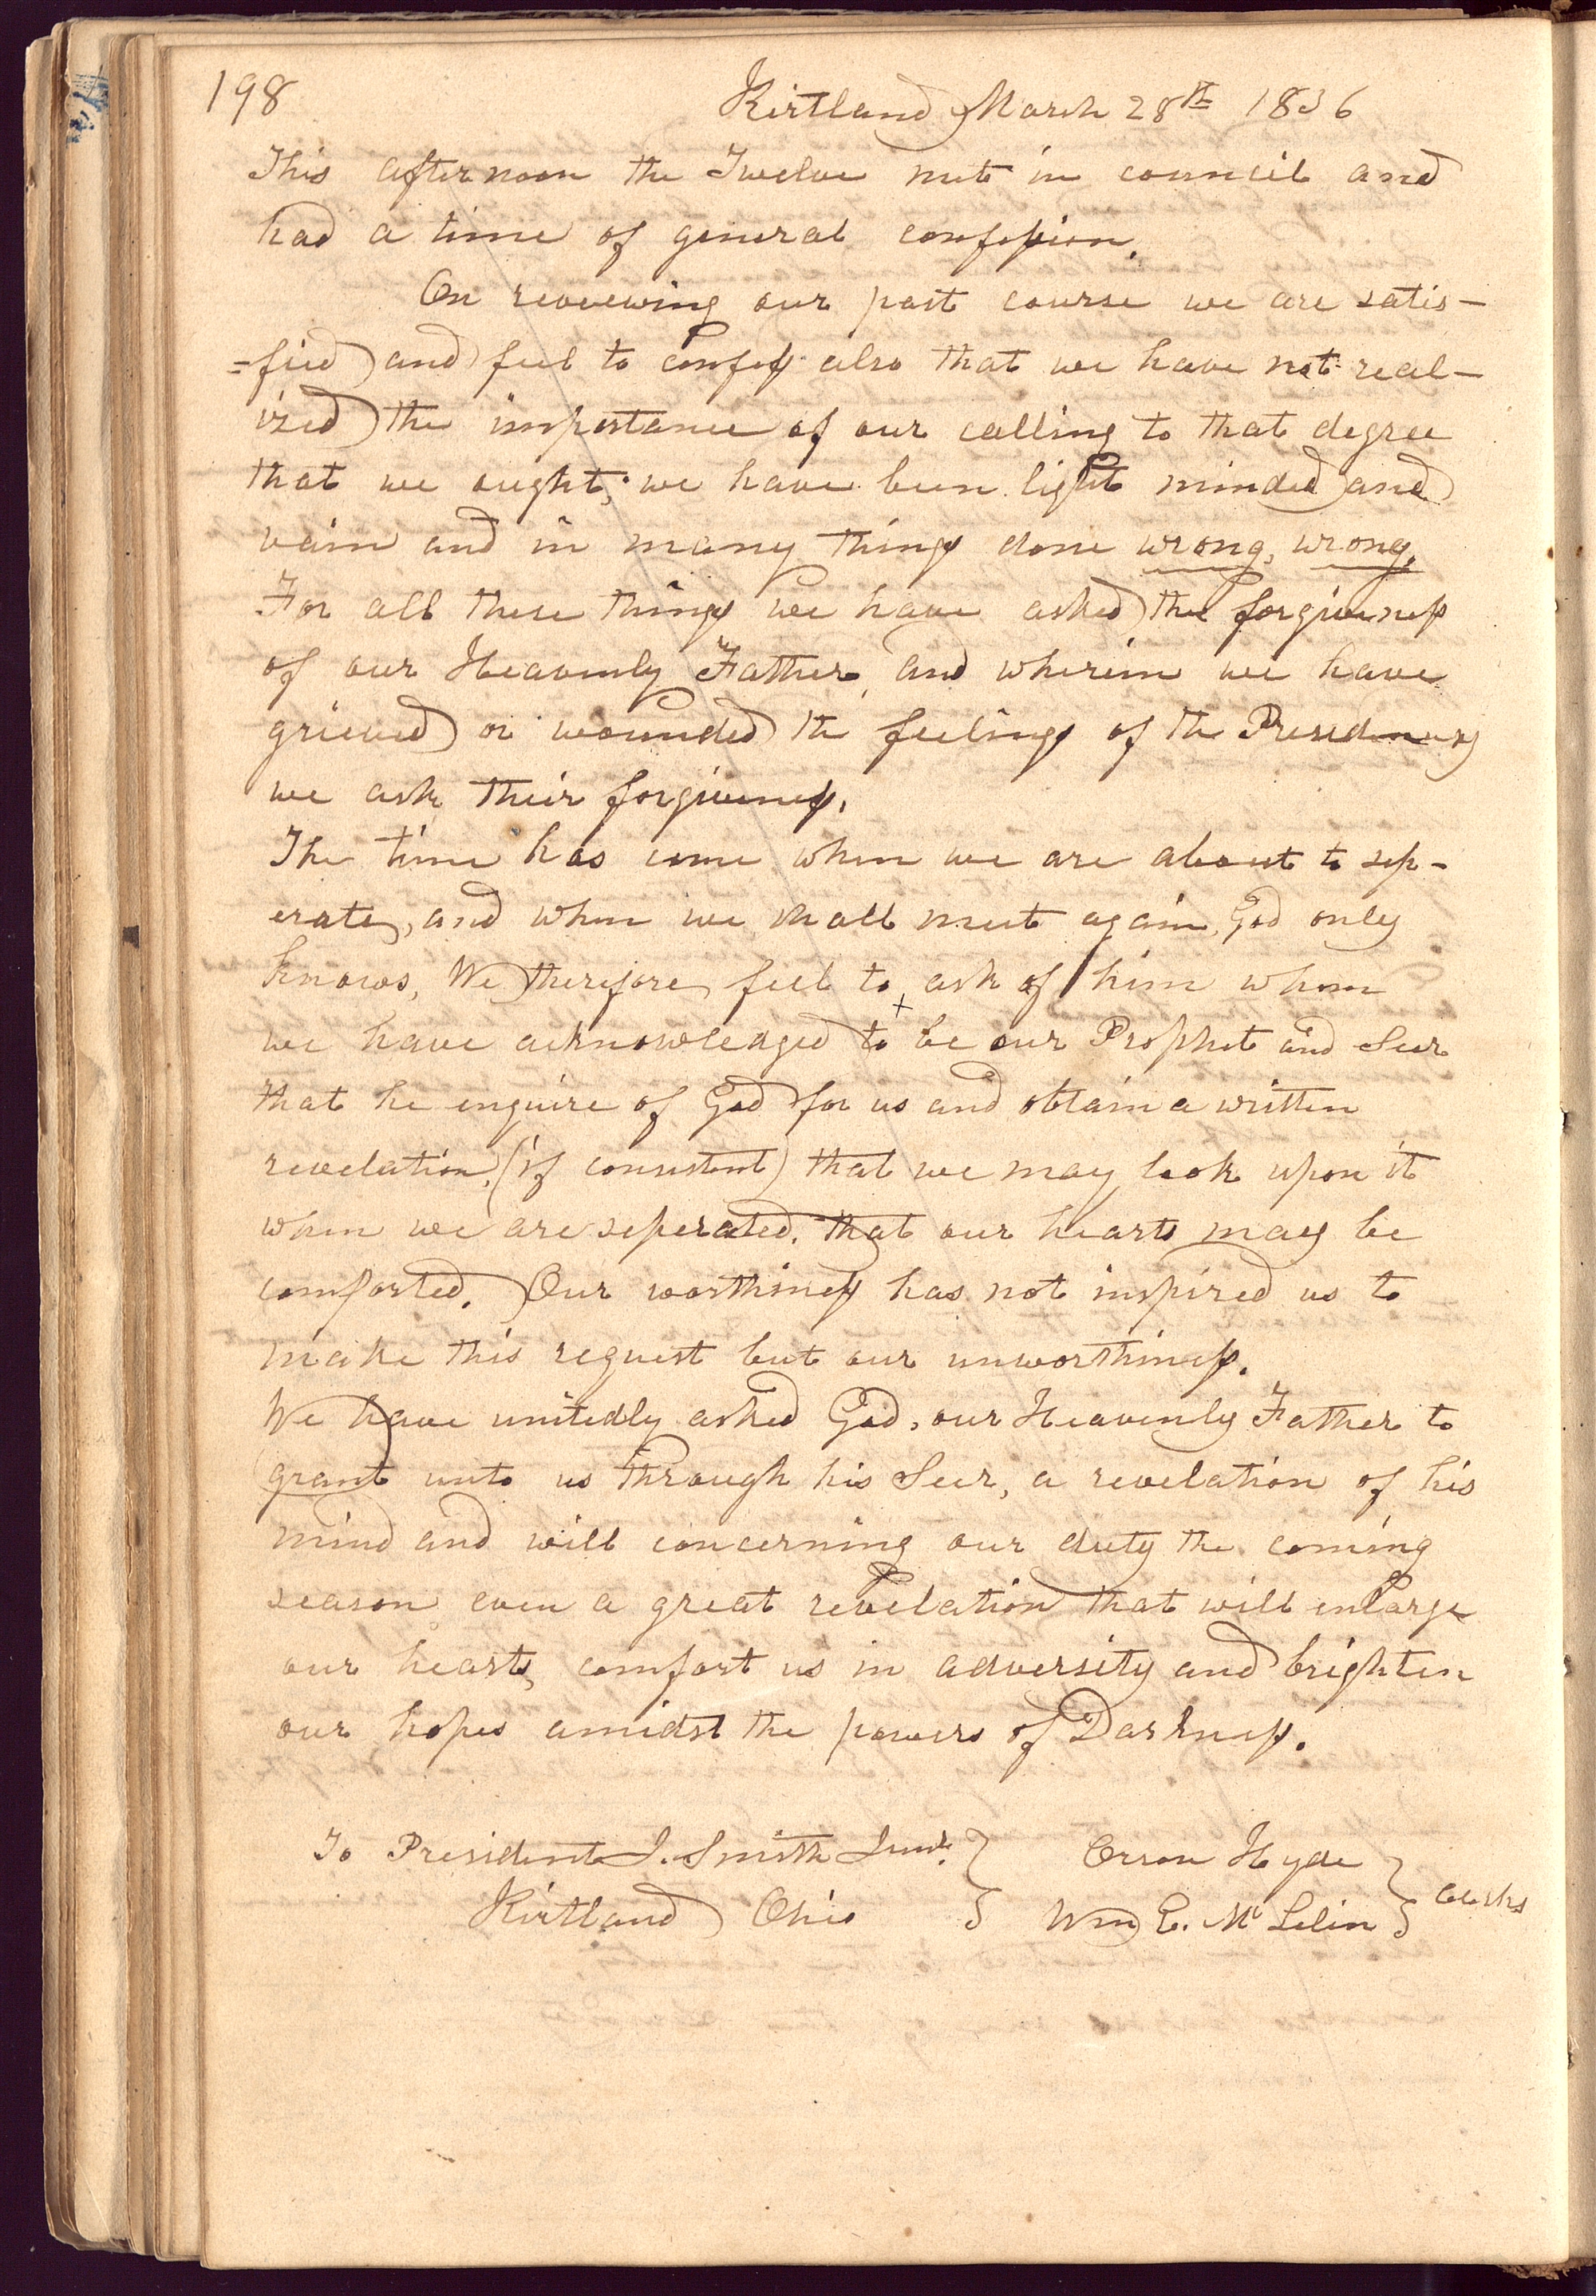 198
Kirtland March 28th 1836
This afternoon the Twelve met in council and
had a time of general confession.
On reveewing our past course we are satis-
=fied and feel to confess also that we have not real-
ized the importance of our calling to that degree
that we ought; we have been light minded and
vain and in many things done wrong, wrong,
For all these things we have asked the forgiveness
of our Heavenly Father, and wherein we have
grieved or wounded the feelings of the Presidency
we ask their forgiveness.
The time has come when we are about to sep-
erate, and when we shall meet again, God only
knows, We therefore feel to ask of him whom
we have acknowledged to be our Prophet and Seer
that he enquire of God for us and obtain a written
revelation, (if consistent) that we may look upon it
when we are seperated, that our hearts may be
comforted. Our worthiness has not inspired us to
make this request but our unworthiness.
We have unitedly asked God, our Heavenly Father to
grant unto us through his Seer, a revelation of his
mind and will concerning our duty the coming
season even a great revelation that will enlarge
our hearts, comfort us in adversity and brighten
our hopes amidst the powers of Darkness.
To President J. Smith Junr. } Orson Hyde }
Kirtland Ohio } Wm E. Mc Lelin } Clerks